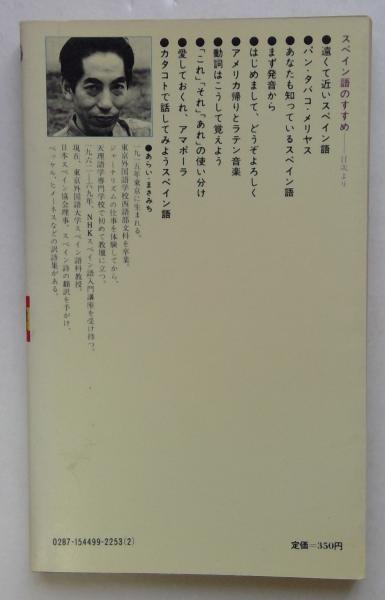 スペイン語のすすめ——目次より
●遠くて近いスペイン語
●パン・タバコ・メリヤス
●あなたも知っているスペイン語
●まず発音から
●はじめまして、どうぞよろしく
●アメリカ帰りとラテン音楽
●動詞はこうして覚えよう
●「これ」「それ」「あれ」の使い分け
●愛しておくれ、アマポーラ
●カタコトで話してみようスペイン語
●あらい・まさみち
一九一五年東京に生まれる。
東京外国語学校西語部文科を卒業。
ジャーナリズムの仕事を体験してから、
天理語学専門学校で初めて教壇に立つ。
一九六二—六九年、NHKスペイン語入門講座を受け持つ。
現在、東京外国語大学スペイン語科教授。
日本スペイン協会理事。スペイン詩の翻訳を手がけ、
ベッケル、ヒメーネスなどの訳詩集がある。
0287-154499-2253(2)
定価=350円